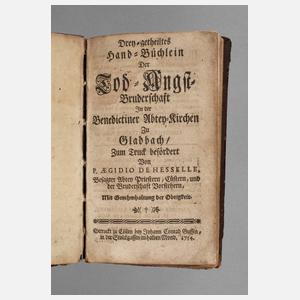 Drey-getheiltes
Hand-Büchlein
Der
Tod-Angst-
Bruderschaft
In der
Benedictiner Abtey-Kirchen
Zu
Gladbach/
Zum Truck befördert
Von
P. ÆGIDIO DE HESSELLE,
Besagter Abtey Priestern, Cüstern, und
der Bruderschaft Vorstehern,
Mit Genehmhaltung der Obrigkeit.
Getruckt zu Cöllen bey Johann Conrad Gussen,
in der Stolckgassen im halben Mond, 1754.